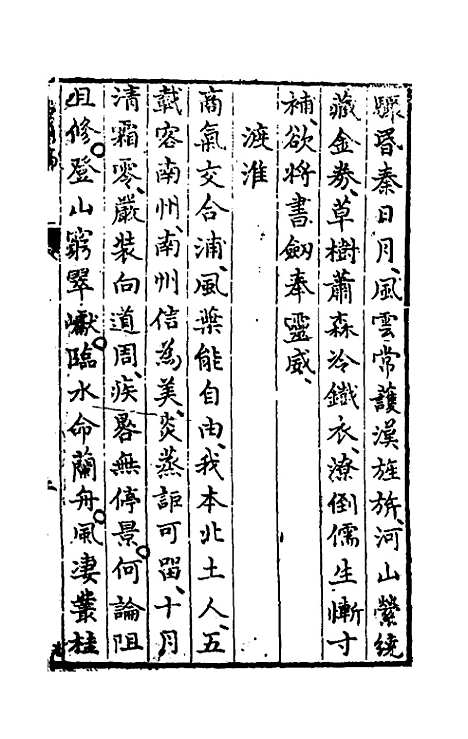 驟昏秦日月、風雲常護漢旌旂、河山縈繞
藏金券、草樹蕭森冷鐵衣、潦倒儒生慚寸
補、欲將書劔奉靈威、
渡淮
商氣交合浦、風葉能自由、我本北土人、五
載客南州、南州信為美、炎蒸詎可畱、十月
清霜零、嚴裝向道周、疾晷無停景、何論阻
且修。登山窮翠巘。臨水命蘭舟。風淒叢桂